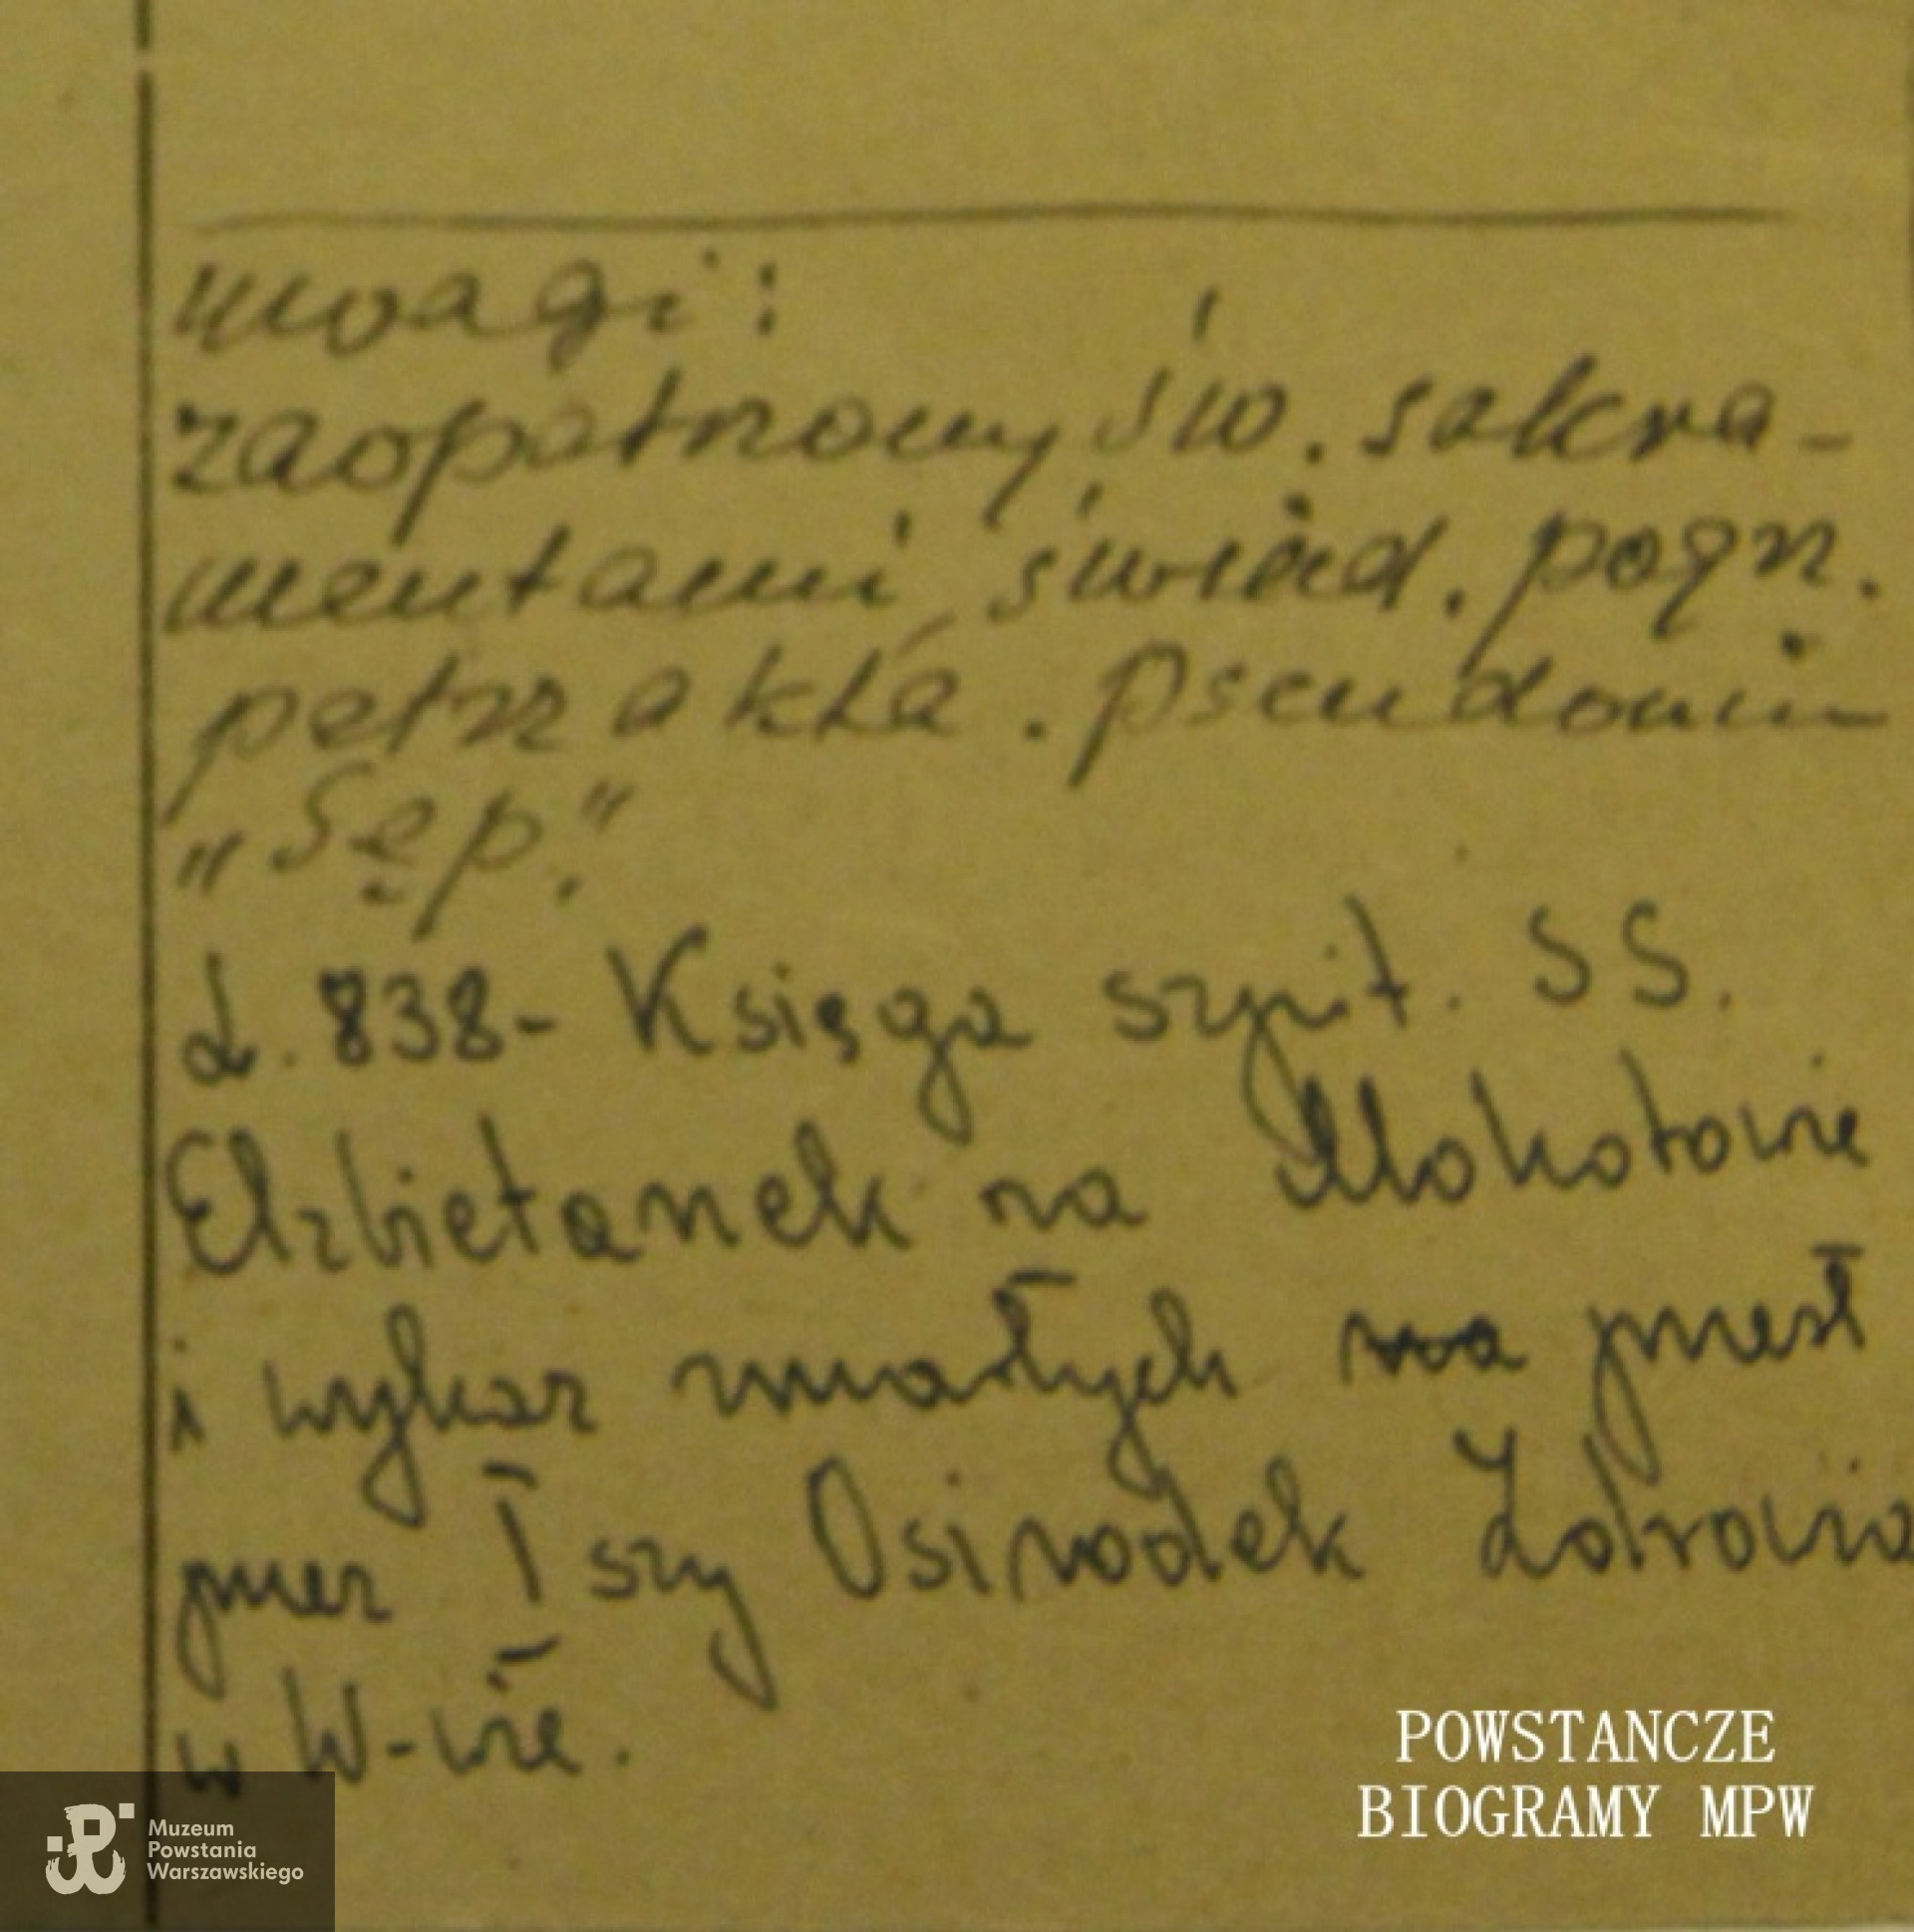 uwagi:
zaopatrzony św. sakra-
mentami świad. pogrz.
petrzakła. pseudonim
„Sęp."
L. 838- Księga szpit. SS.
Elzbietanek na Mokotowie
i wykaz zmarłych na
przez I szy Osirodek Zdrowia
w W-wie.
POWSTAŃCZE
BIOGRAMY MPW
Muzeum
Powstania
Warszawskiego